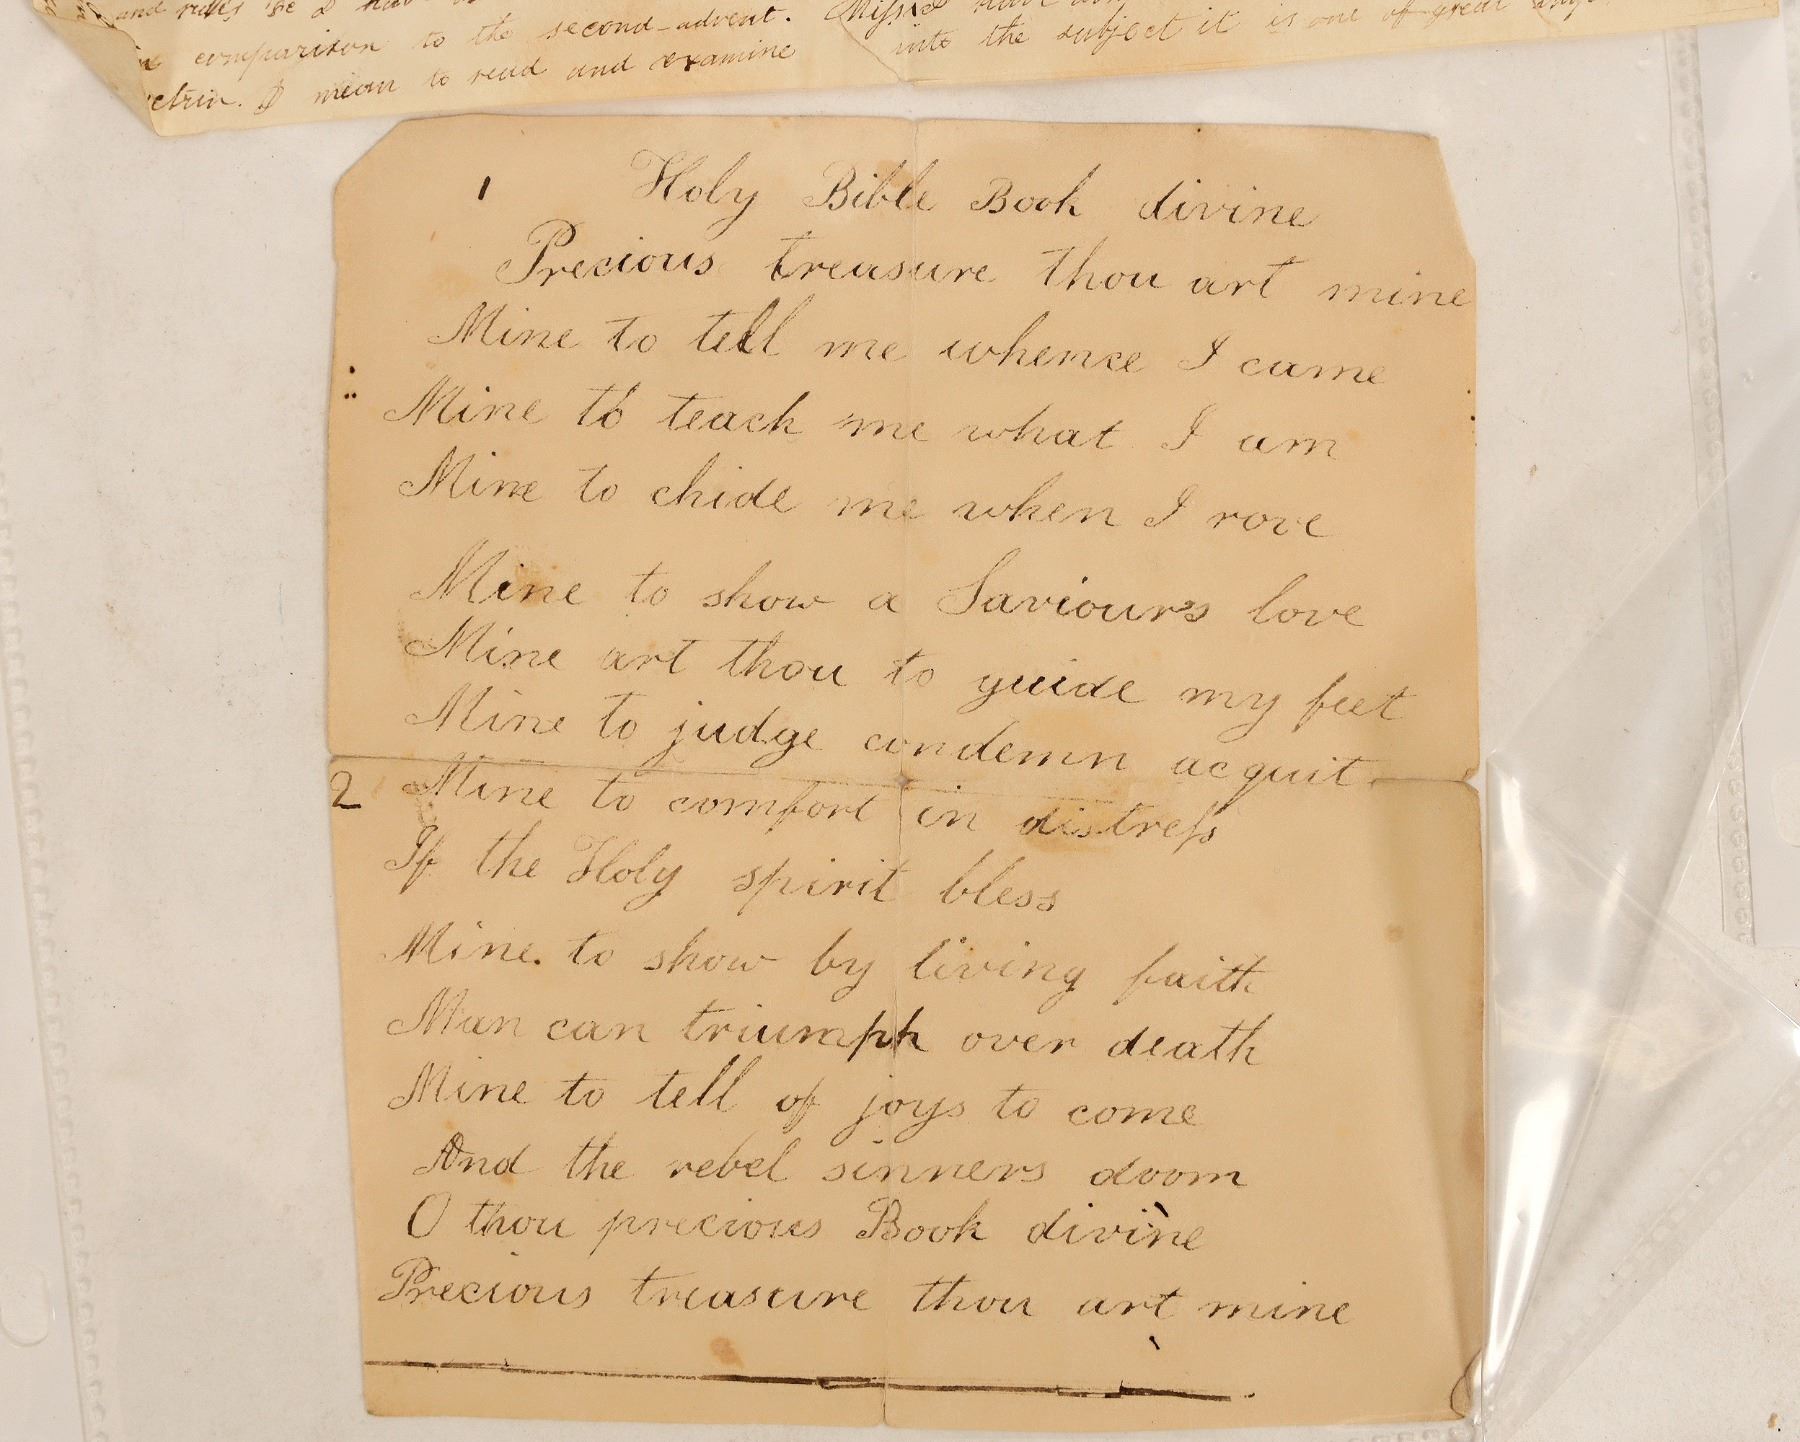 and rules
comparison to the second-advent.
into the subject it is one of great
I mean to read and examine
1 Holy Bible Book divine
Precious treasure thou art mine
Mine to tell me whence I came
Mine to teach me what I am
Mine to chide me when I rove
Mine to show a Saviours love
Mine art thou to guide my feet
Mine to judge condemn acquit.
2 Mine to comfort in distreſs
If the Holy spirit bless
Mine. to show by living faith
Man can triumph over death
Mine to tell of joys to come
And the rebel sinners doom
O thou precious Book divine
Precious treasure thou art mine